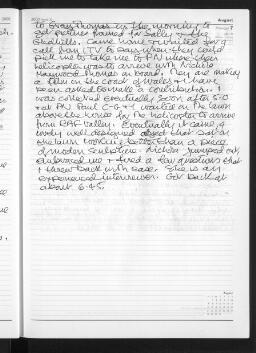 August
to Gray Thomas in the morning to
get picture framed for Sally & the
Gladhills. Came home & waited for a
call from LTV to say when they could
pick me to take me to PN where their
helicopter was to arrive with
Haywood Thomas on board. They are making
a film on the coast of Wales & I have
been asked to make a contribution. I
was collected eventually soon after 5.0
& at PN Paul C-G & I waited on the lawn
above the house for the helicopter to arrive
from RAF Valley. Eventually it came, a
lovely well designed object that sat on
the lawn looking better than a piece
of modern sculpture. jumped out,
embraced me & fired a few questions that
I threw back with ease. She is an
experienced interviewer. Got back at
about 6.45.
August